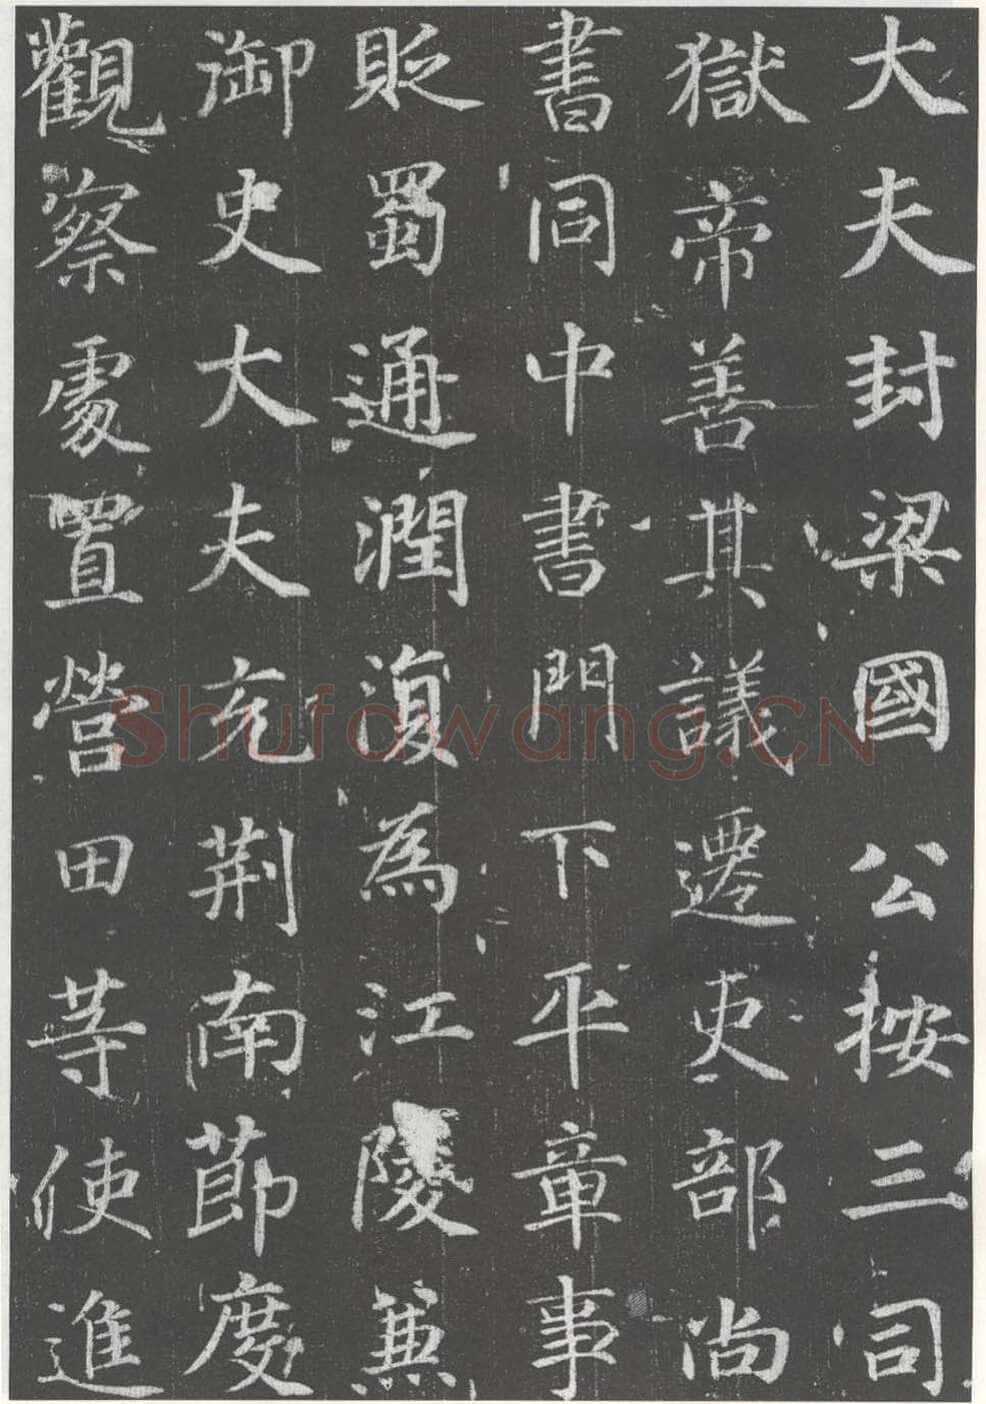 大夫封梁國公按三司
獄帝善其議遷吏部尚
書同中書門下平章事
貶蜀通潤復為江陵兼
御史大夫充荆南節度
觀察處置營田等使進
Shufawang.CN